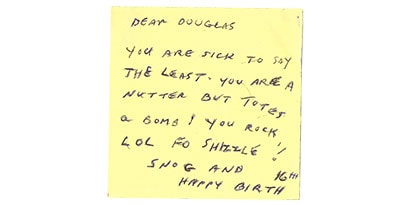 DEAR DOUGLAS
YOU ARE SICK TO SAY
THE LEAST. YOU ARE A
NUTTER BUT TOTES
a BOMB! YOU ROCK
LOL FO SHIZZLE!
SNOG AND 16TH
HAPPY BIRTH